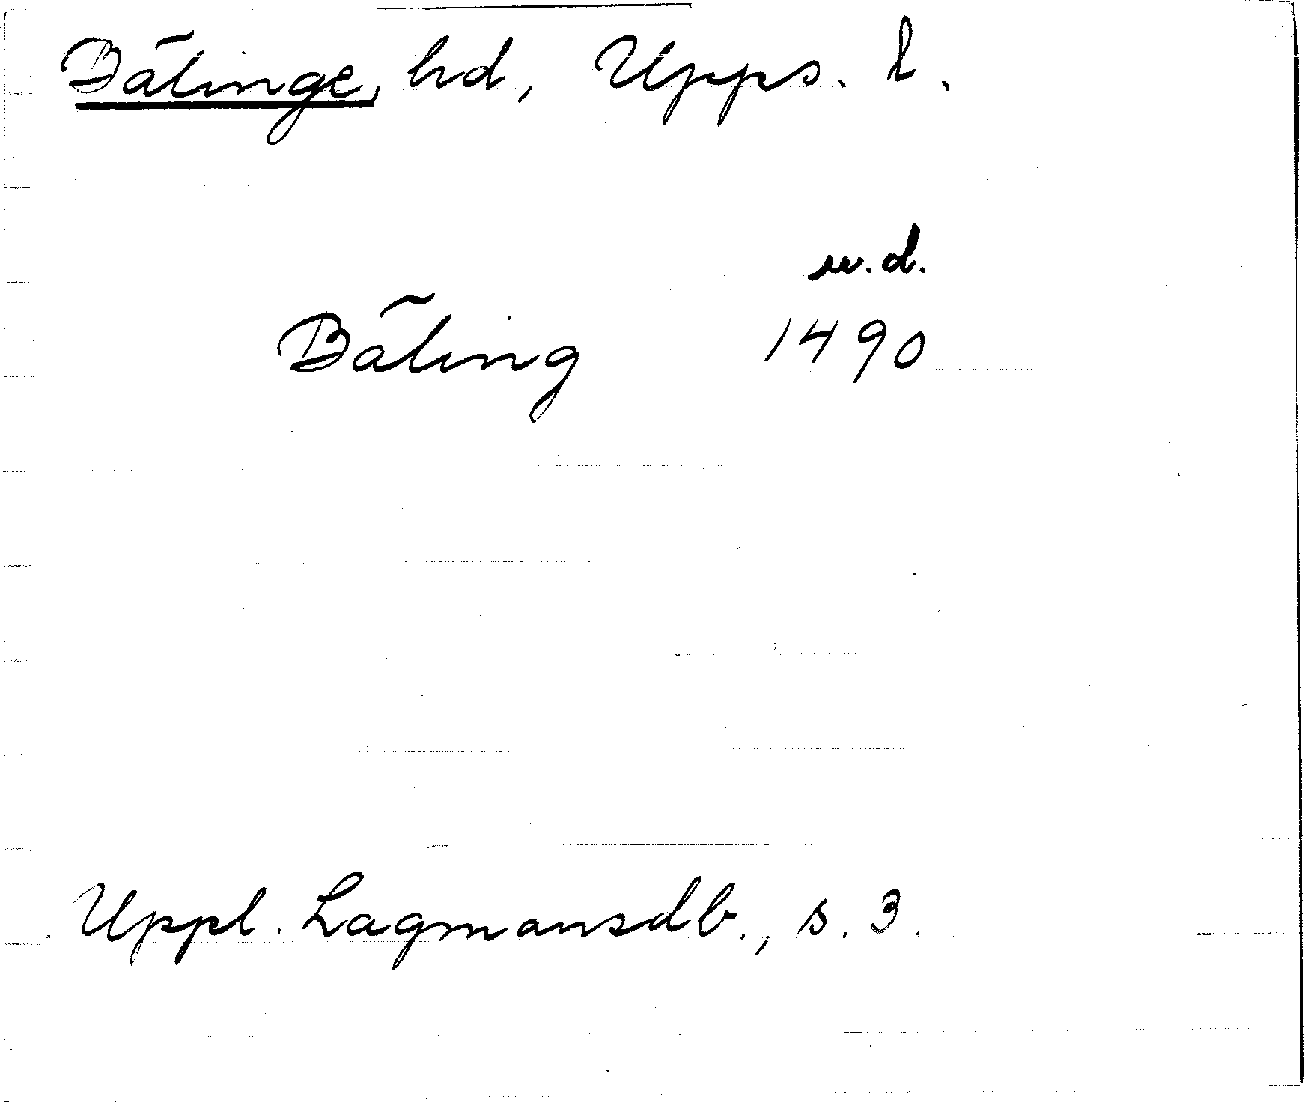 Bälinge, hd, Upps. l.
u.d.
Bäling 1490
Uppl. Lagmansdb., s. 3.